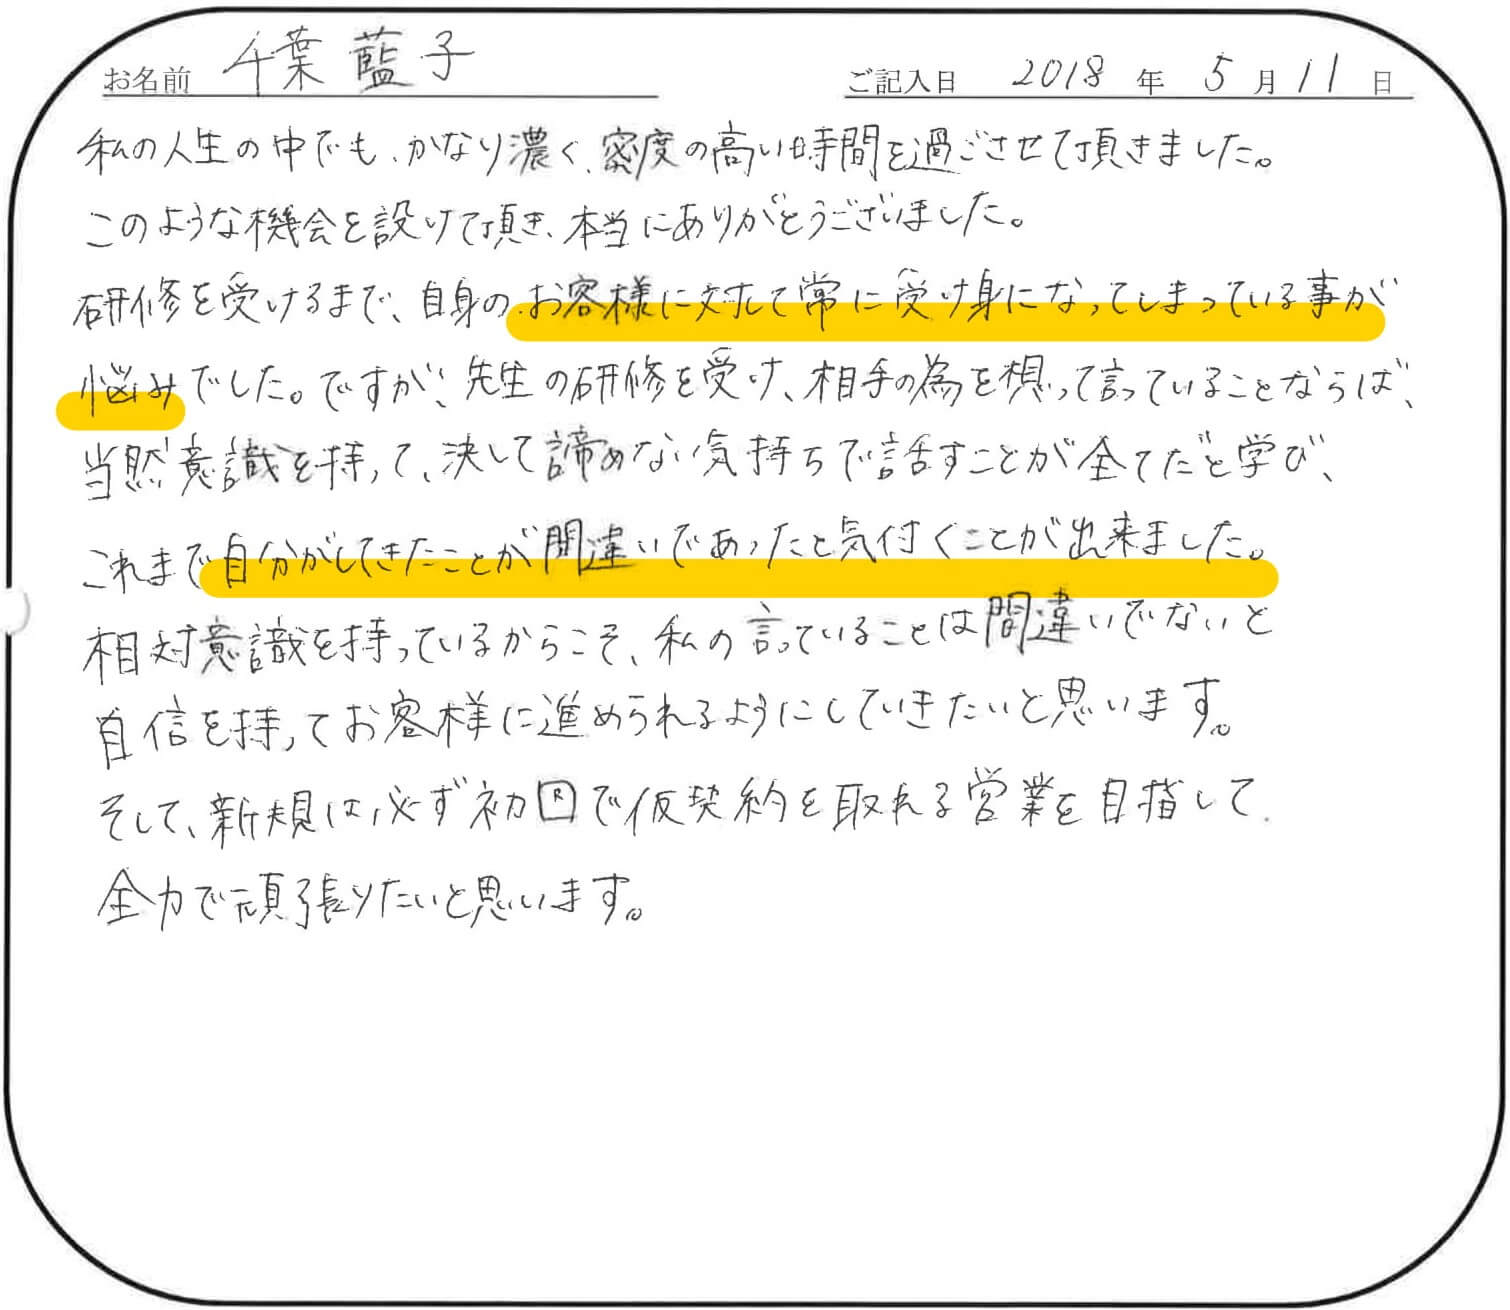 お名前 千葉 藍子 ご記入日 2018 年 5 月 11 日
私の人生の中でも、かなり濃く、密度の高い時間を過ごさせて頂きました。
このような機会を設けて頂き、本当にありがとうございました。
研修を受けるまで、自身のお客様に対して常に受け身になってしまっている事が
悩みでした。ですが、先生の研修を受け、相手の為を想って言っていることならば、
当然意識を持って、決して諦めない気持ちで話すことが全てだと学び、
これまで自分がしてきたことが間違いであったと気付くことが出来ました。
相対意識を持っているからこそ、私の言っていることは間違いでないと
自信を持ってお客様に進められるようにしていきたいと思います。
そして、新規は必ず初回で仮契約を取れる営業を目指して
全力で頑張りたいと思います。